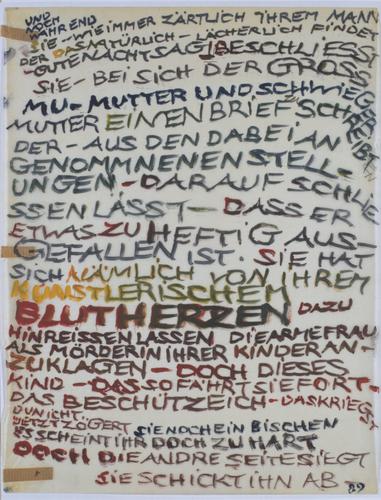 UND NOCH
WÄHREND
SIE – WIE IMMER ZÄRTLICH IHREM MANN
DER DAS NATÜRLICH – LÄCHERLICH FINDET
– GUTENACHT SAGT BESCHLIESST
SIE – BEI SICH DER GROSS
MU-MUTTER UND SCHWIEGER
MUTTER EINEN BRIEF SCHREIBEN
DER – AUS DEN DABEI AN
GENOMMNENEN STELL-
UNGEN – DARAUF SCHLIE
SSEN LÄSST – DASS ER
ETWAS ZU HEFTIG AUS-
GEFALLEN IST. SIE HAT
SICH NÄMLICH VON IHREM
KÜNSTLERISCHEM
BLUTHERZEN DAZU
HINREISSEN LASSEN DIE ARME FRAU
ALS MÖRDERIN IHRER KINDER AN-
ZUKLAGEN – DOCH DIESES
KIND – DAS SO FÄHRT SIE FORT,
DAS BESCHÜTZ EICH – DAS KRIEGST
DU NICHT.
JETZT ZÖGERT SIE NOCH EIN BISCHEN
ES SCHEINT IHR DOCH ZU HART
DOCH DIE ANDRE SEITE SIEGT
SIE SCHICKT IHN AB